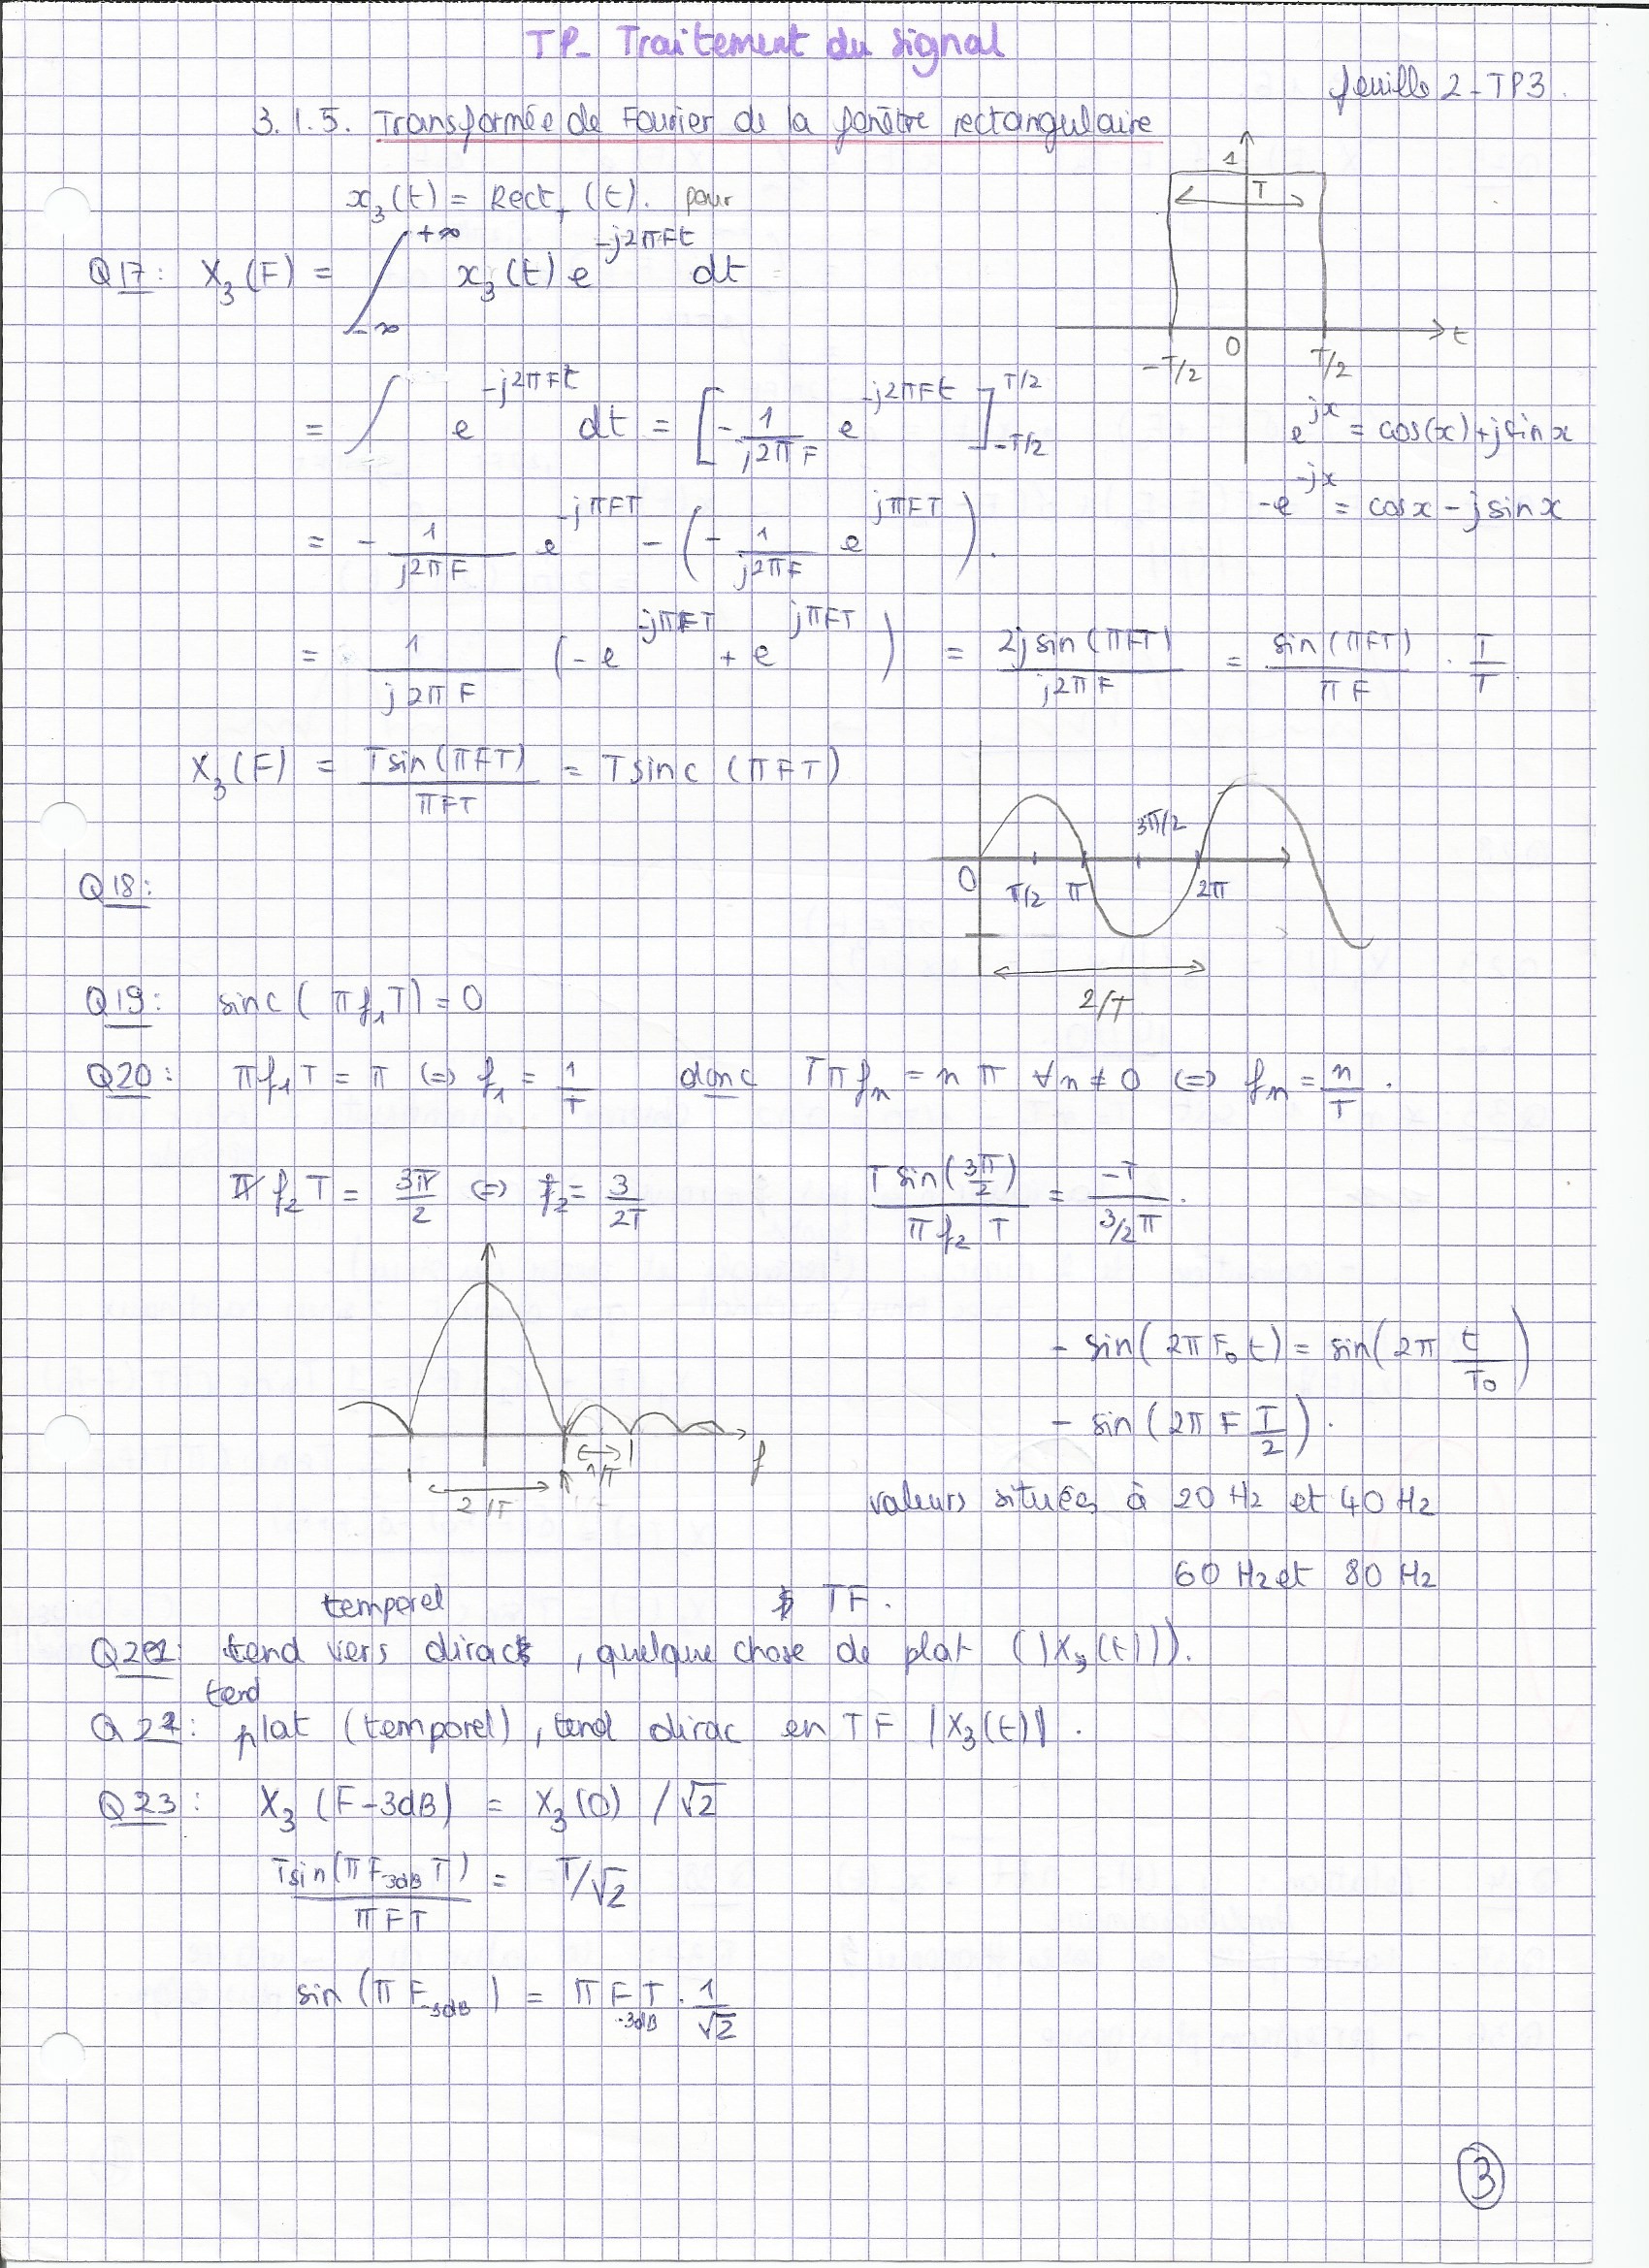 TP_ Traitement du signal
feuille 2 - TP3.
3.1.5. Transformée de Fourier de la fenêtre rectangulaire
x₃(t) = Rect_T (t). pour
1
T
-T/2 0 T/2 t
Q17: X₃(F) = ∫_{-∞}^{+∞} x₃(t) e^{-j2πFt} dt
= ∫ e^{-j2πFt} dt = [-1/(j2πF) e^{-j2πFt}]_{-T/2}^{T/2}
e^{jx} = cos(x)+jsin x
-e^{-jx} = cosx - jsinx
= - 1/(j2πF) e^{-jπFT} - (- 1/(j2πF) e^{jπFT}).
= 1/(j2πF) (-e^{-jπFT} + e^{jπFT}) = 2jsin(πFT)/(j2πF) = sin(πFT)/(πF) · T/T
X₃(F) = Tsin(πFT)/(πFT) = Tsinc (πFT)
0 π/2 π 3π/2 2π
2/T
Q18:
Q19: sinc( πf₁T) = 0
Q20: πf₁T = π ⇔ f₁ = 1/T donc Tπfₙ = n π ∀n ≠ 0 ⇔ fₙ = n/T .
π f₂ T = 3π/2 ⇔ f₂ = 3/(2T) T sin(3π/2)/(π f₂ T) = -T/(3/2 π) .
2/T 1/T f
- sin( 2πF₀t) = sin(2π t/T₀)
- sin (2π F T/2) .
valeurs situées à 20 Hz et 40 Hz
60 Hz et 80 Hz
temporel TF.
Q21: tend vers dirac, quelque chose de plat (|X₃(t)|).
tend
Q22: plat (temporel), tend dirac en TF |X₃(t)| .
Q23: X₃ (F-3dB) = X₃(0) /√2
Tsin(π F_{-3dB} T)/(πFT) = T/√2
sin (π F_{-3dB} ) = π F_{-3dB} T . 1/√2
3